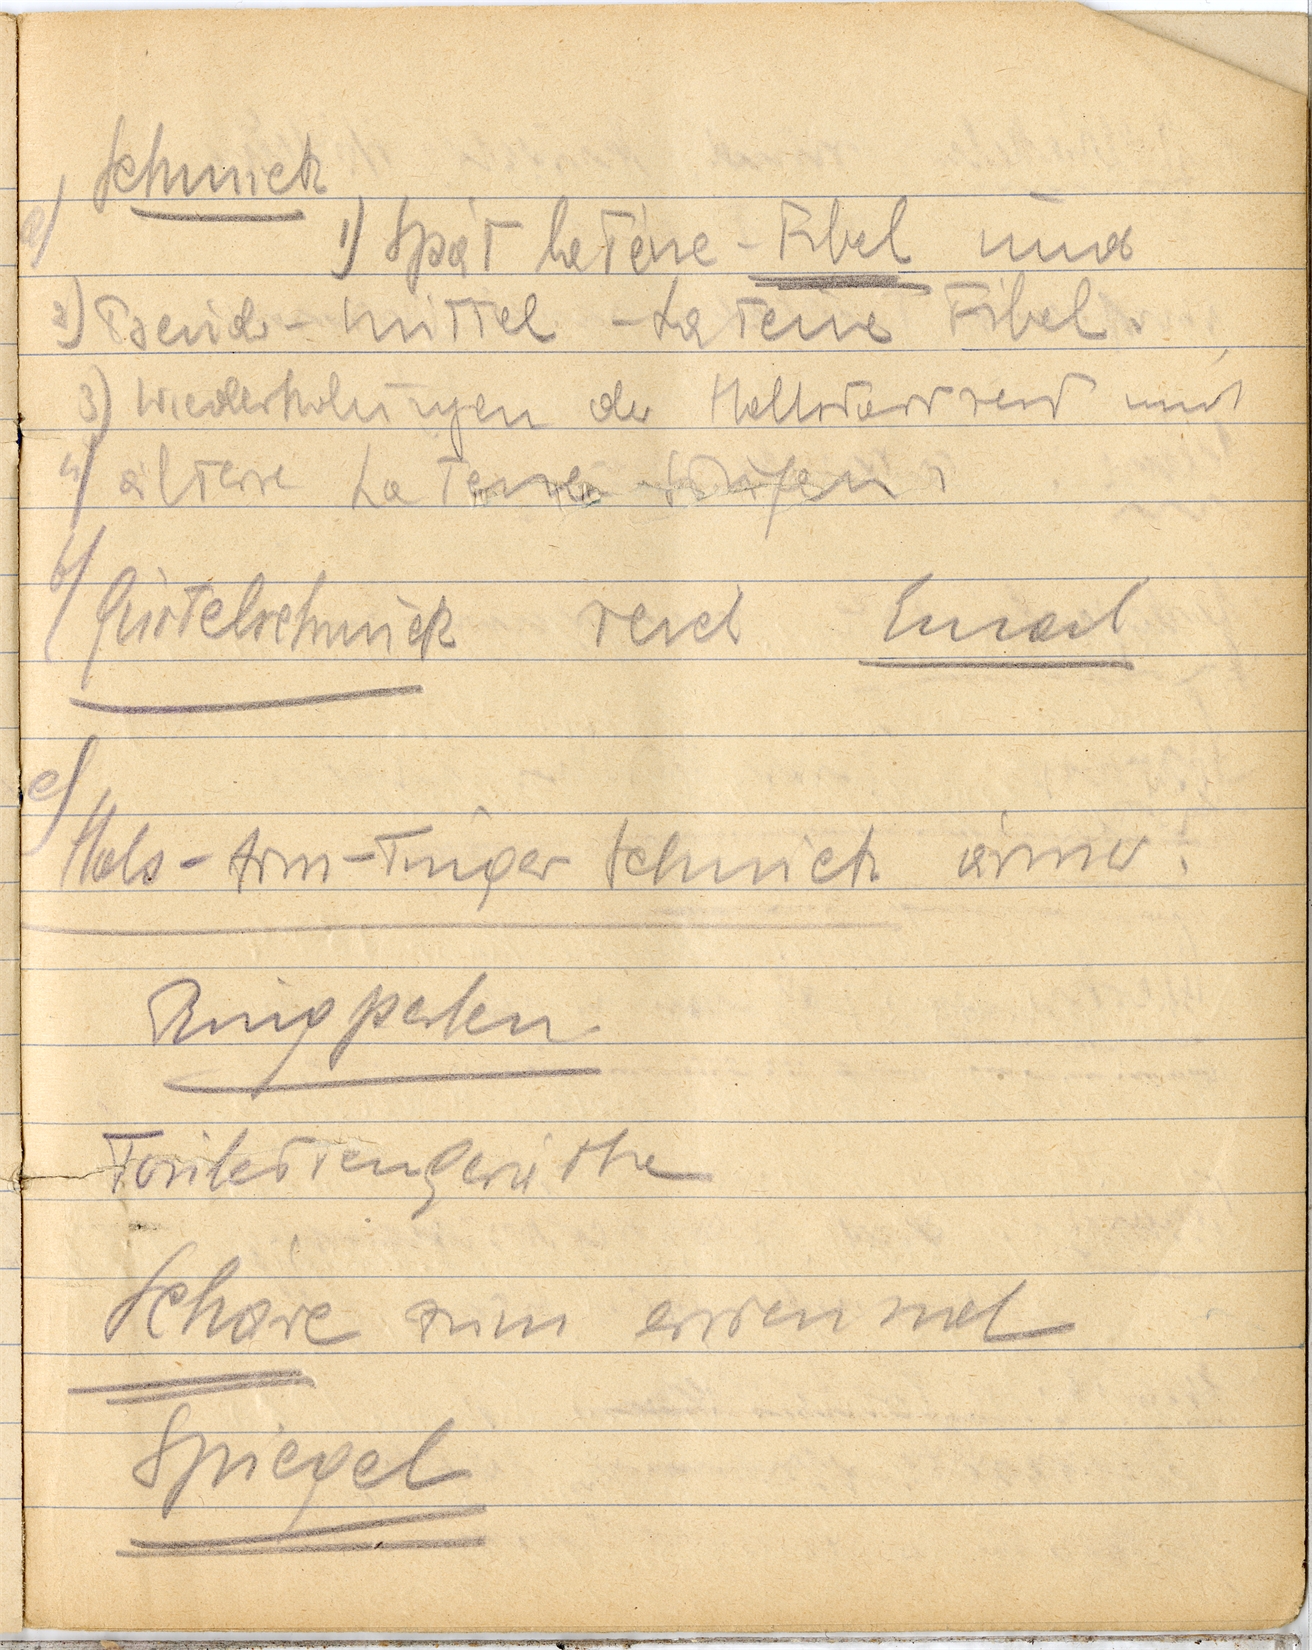 Schmuck
a) 1) Spät Latène - Fibel und
2) Pseudo - Mittel - Latène Fibel.
3) Wiederholungen der Hallstattzeit und
4) ältere La Tène Stufen.
b) Gürtelschmuck reich Email
c)
Hals - Arm - Finger Schmuck ärmer.
Ringperlen
Toilettengeräthe
Schere zum erstenmal
Spiegel